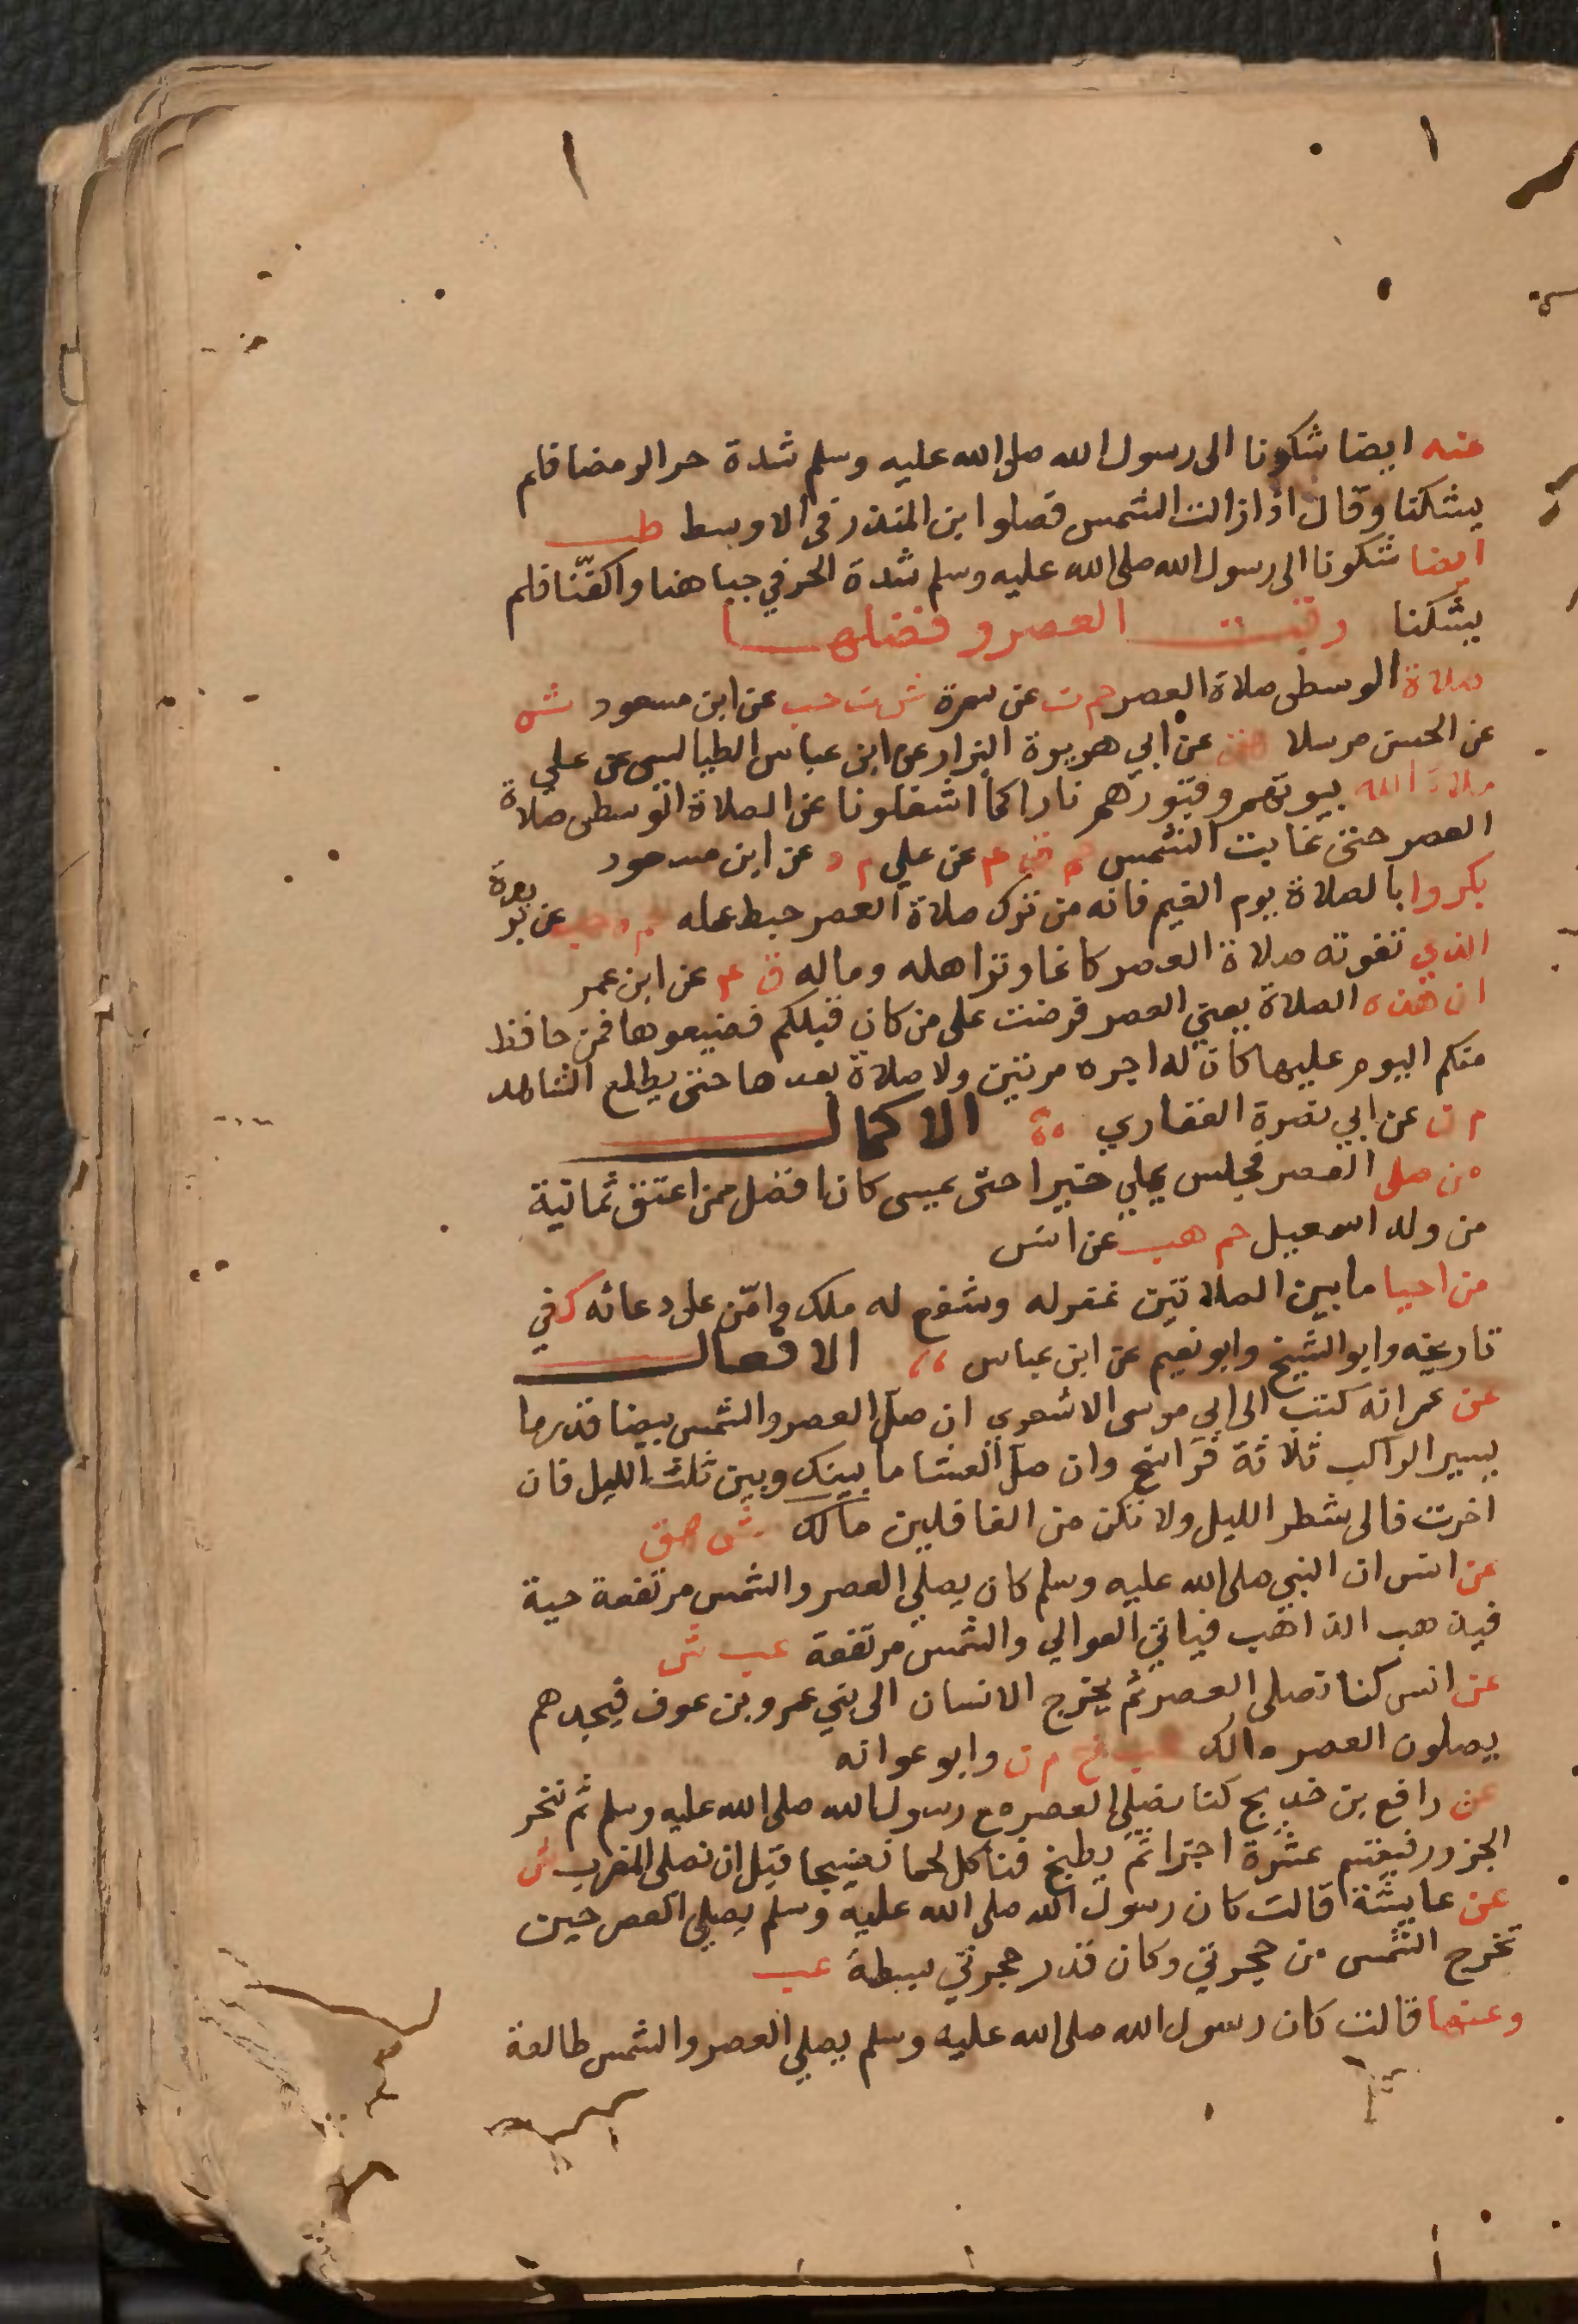 عنه ايضا شكونا الى رسول الله صلى الله عليه وسلم شدة حر الرمضا فلم
يشكنا وقال اذا زالت الشمس فصلوا ابن المنذر في الاوسط طب
ايضا شكونا الى رسول الله صلى الله عليه وسلم شدة الحر في جباهنا واكفّنا فلم
يشكنا وقت العصر وفضلها
صلاة الوسطى صلاة العصر حم ت عن سمرة ش ت حب عن ابن مسعود ش
عن الحسن مرسلا هق عن ابي هريرة البزار عن ابن عباس الطيالسي عن علي
ملا الله بيوتهم وقبورهم نارا كما اشغلونا عن الصلاة الوسطى صلاة
العصر حتى غابت الشمس حم ق ع عن علي م ه عن ابن مسعود
بكروا بالصلاة يوم الغيم فانه من ترك صلاة العصر حبط عمله حم ه حب عن بريدة
الذي تفوته صلاة العصر كانما وتر اهله وماله ق ع عن ابن عمر
ان هذه الصلاة يعني العصر فرضت على من كان قبلكم فضيعوها فمن حافظ
منكم اليوم عليها كان له اجره مرتين ولا صلاة بعدها حتى يطلع الشاهد
م ن عن ابي بصرة الغفاري الاكمال
من صلى العصر فجلس يملي خيرا حتى يمسى كان افضل ممن اعتق ثمانية
من ولد اسمعيل حم هب عن انس
من احيا ما بين الصلاتين غفر له وشفع له ملك وامّن على دعائه ك في
تاريخه وابو الشيخ وابو نعيم عن ابن عباس الافعال
عن عمر انه كتب الى ابي موسى الاشعري ان صل العصر والشمس بيضا قدر ما
يسير الراكب ثلاثة فراسخ وان صل العشا ما بينك وبين ثلث الليل فان
اخرت فالى شطر الليل ولا تكن من الغافلين مالك ش هق
عن انس ان النبي صلى الله عليه وسلم كان يصلي العصر والشمس مرتفعة حية
فيذهب الذاهب فياتي العوالي والشمس مرتفعة عب ش
عن انس كنا نصلى العصر ثم يخرج الانسان الى بني عمرو بن عوف فيجدهم
يصلون العصر مالك عب خ م ن وابو عوانه
عن رافع بن خديج كنا نصلي العصر مع رسول الله صلى الله عليه وسلم ثم ننحر
الجزور فيقسم عشرة اجزا ثم يطبخ فناكل لحما نضيجا قبل ان نصلى المغرب ش
عن عايشة قالت كان رسول الله صلى الله عليه وسلم يصلي العصر حين
تخرج الشمس من حجرتي وكان قدر حجرتي بسطة عب
وعنها قالت كان رسول الله صلى الله عليه وسلم يصلي العصر والشمس طالعة